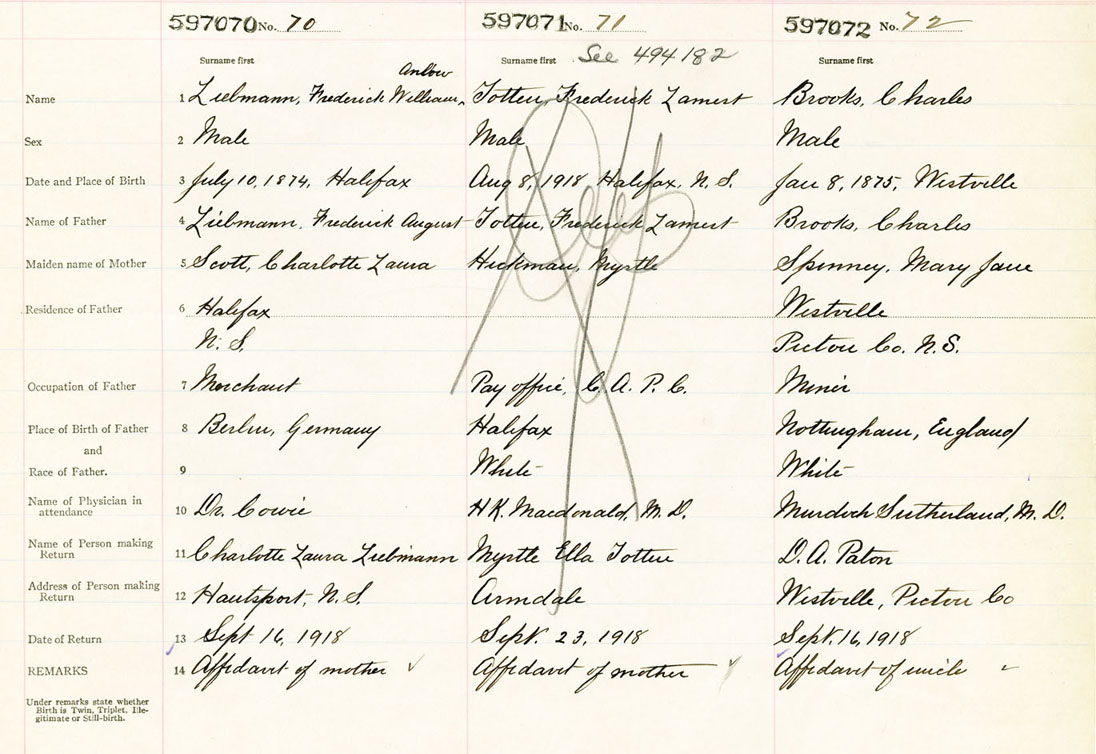 597070 No. 70 597071 No. 71 597072 No. 72
See 494182
Surname first Surname first Surname first
Name 1 Liebmann, Frederick William Totten, Frederick Lamert Brooks, Charles
Sex 2 Male Male Male
Date and Place of Birth 3 July 10, 1874, Halifax Aug 8, 1918 Halifax, N.S. Jan 8, 1875, Westville
Name of Father 4 Liebmann, Frederick August Totten, Frederick Lamert Brooks, Charles
Maiden name of Mother 5 Scott, Charlotte Laura Hickman, Myrtle Spinney, Mary Jane
Residence of Father 6 Halifax Westville
N.S. Pictou Co. N.S.
Occupation of Father 7 Merchant Pay office, C.A.P.C. Miner
Place of Birth of Father 8 Berlin, Germany Halifax Nottingham, England
and
Race of Father. 9 White White
Name of Physician in
attendance 10 Dr. Cowie H.K. Macdonald, M.D. Murdoch Sutherland, M.D.
Name of Person making
Return 11 Charlotte Laura Liebmann Myrtle Ella Totten D.A. Paton
Address of Person making
Return 12 Hantsport, N.S. Armdale Westville, Pictou Co
Date of Return 13 Sept 16, 1918 Sept. 23, 1918 Sept. 16, 1918
REMARKS 14 Affidavit of mother Affidavit of mother Affidavit of uncle
Under remarks state whether
Birth is Twin, Triplet, Ille-
gitimate or Still-birth.